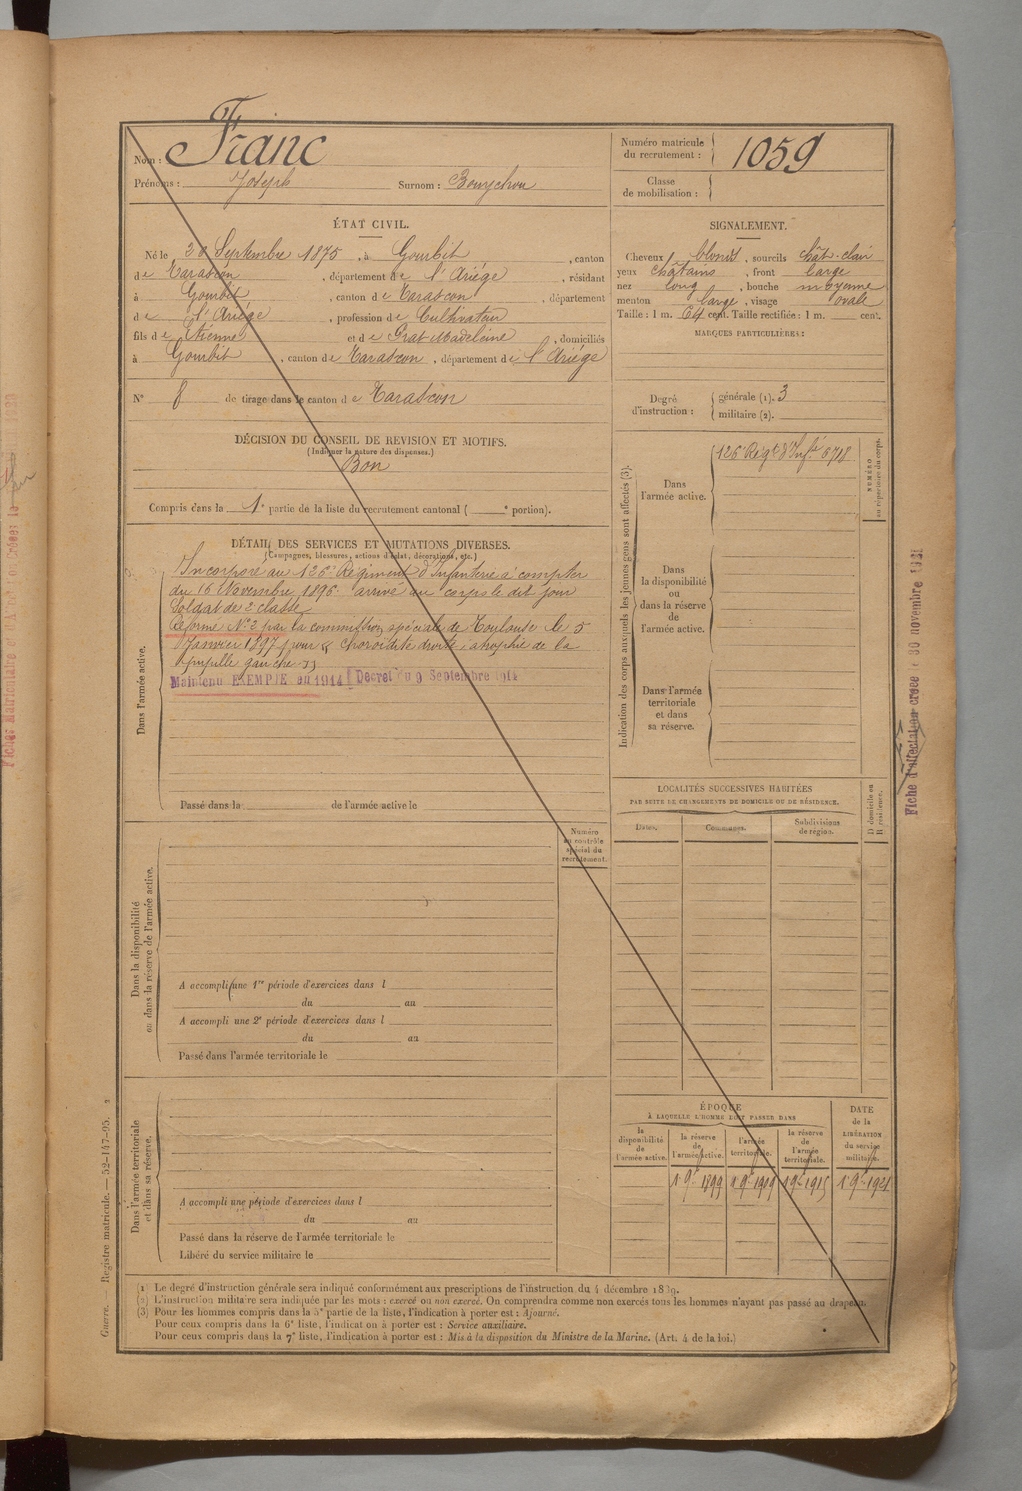 Nom : Franc
Prénoms : Joseph Surnom :
Numéro matricule du recrutement : 1059
Classe de mobilisation :
ÉTAT CIVIL.
Né le 20 Septembre 1875, à Gourbit, canton
de Tarascon, département de l'Ariége, résidant
à Gourbit, canton de Tarascon, département
de l'Ariége, profession de Cultivateur
fils de Etienne et de Prat Madeleine, domiciliés
à Gourbit, canton de Tarascon, département de l'Ariége
N° 8 de tirage dans le canton de Tarascon
SIGNALEMENT.
Cheveux blonds, sourcils chât. clair
yeux châtains, front large
nez long, bouche moyenne
menton large, visage ovale
Taille : 1 m. 64 cent. Taille rectifiée : 1 m. cent.
MARQUES PARTICULIÈRES :
Degré d'instruction : générale (1). 3
militaire (2).
DÉCISION DU CONSEIL DE REVISION ET MOTIFS.
(Indiquer la nature des dispenses.)
Bon
Compris dans la 1e partie de la liste du recrutement cantonal ( e portion).
DÉTAIL DES SERVICES ET MUTATIONS DIVERSES.
(Campagnes, blessures, actions d'éclat, décorations, etc.)
Dans l'armée active.
Incorporé au 126e Régiment d'Infanterie à compter
du 16 Novembre 1896. arrivé au corps le dit jour
Soldat de 2e classe
Réformé N° 2 par la commission spéciale de Toulouse le 5
Janvier 1897 pour choroïdite droite, atrophie de la
pupille gauche
Maintenu EXEMPTE en 1914 Decret du 9 Septembre 1914
Passé dans la de l'armée active le
Indication des corps auxquels les jeunes gens sont affectés (3).
Dans l'armée active.
126e Régt d'Infie 6718
NUMÉRO au répertoire du corps.
Dans la disponibilité ou dans la réserve de l'armée active.
Dans l'armée territoriale et dans sa réserve.
Fiche d'affectation créée le 30 novembre 1921
LOCALITÉS SUCCESSIVES HABITÉES
PAR SUITE DE CHANGEMENTS DE DOMICILE OU DE RÉSIDENCE.
Dates. Communes. Subdivisions de région.
D domicile ou R résidence.
Numéro au contrôle spécial du recrutement.
Dans la disponibilité ou dans la réserve de l'armée active.
A accompli une 1re période d'exercices dans l
du au
A accompli une 2e période d'exercices dans l
du au
Passé dans l'armée territoriale le
Dans l'armée territoriale et dans sa réserve.
A accompli une période d'exercices dans l
du au
Passé dans la réserve de l'armée territoriale le
Libéré du service militaire le
ÉPOQUE
À LAQUELLE L'HOMME DOIT PASSER DANS
la disponibilité de l'armée active.
la réserve de l'armée active.
l'armée territoriale.
la réserve de l'armée territoriale.
DATE de la LIBÉRATION du service militaire.
1 9e 1899 1 9e 1909 1 9e 1915 1 9e 1921
(1) Le degré d'instruction générale sera indiqué conformément aux prescriptions de l'instruction du 4 décembre 1889.
(2) L'instruction militaire sera indiquée par les mots : exercé ou non exercé. On comprendra comme non exercés tous les hommes n'ayant pas passé au drapeau.
(3) Pour les hommes compris dans la 5e partie de la liste, l'indication à porter est : Ajourné.
Pour ceux compris dans la 6e liste, l'indication à porter est : Service auxiliaire.
Pour ceux compris dans la 7e liste, l'indication à porter est : Mis à la disposition du Ministre de la Marine. (Art. 4 de la loi.)
Guerre. — Registre matricule. — 52-147-95.